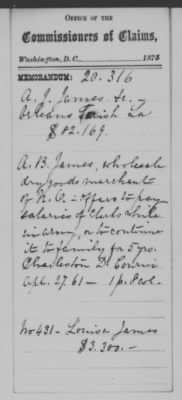 OFFICE OF THE
Commissioners of Claims,
Washington, D. C., 1875
MEMORANDUM: 20.316
A. J. James &c.,
Orleans Parish La
$82.169.
A. B. James, wholesale
dry goods merchant
of N. O. - offers to pay
salaries of clerks while
in army, or to continue
it to family for 5 yrs.
Charleston D. Courier
Apl. 27. 61 — 1 p.
No 431 - Louisa James
$3.300. -